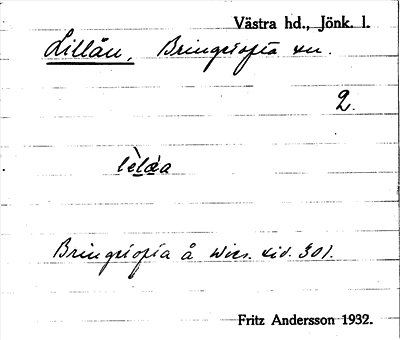 Västra hd., Jönk. l.
Lillån, Bringetofta sn.
2.
lèlåa
Bringetofta å Wies. tid. 301.
Fritz Andersson 1932.